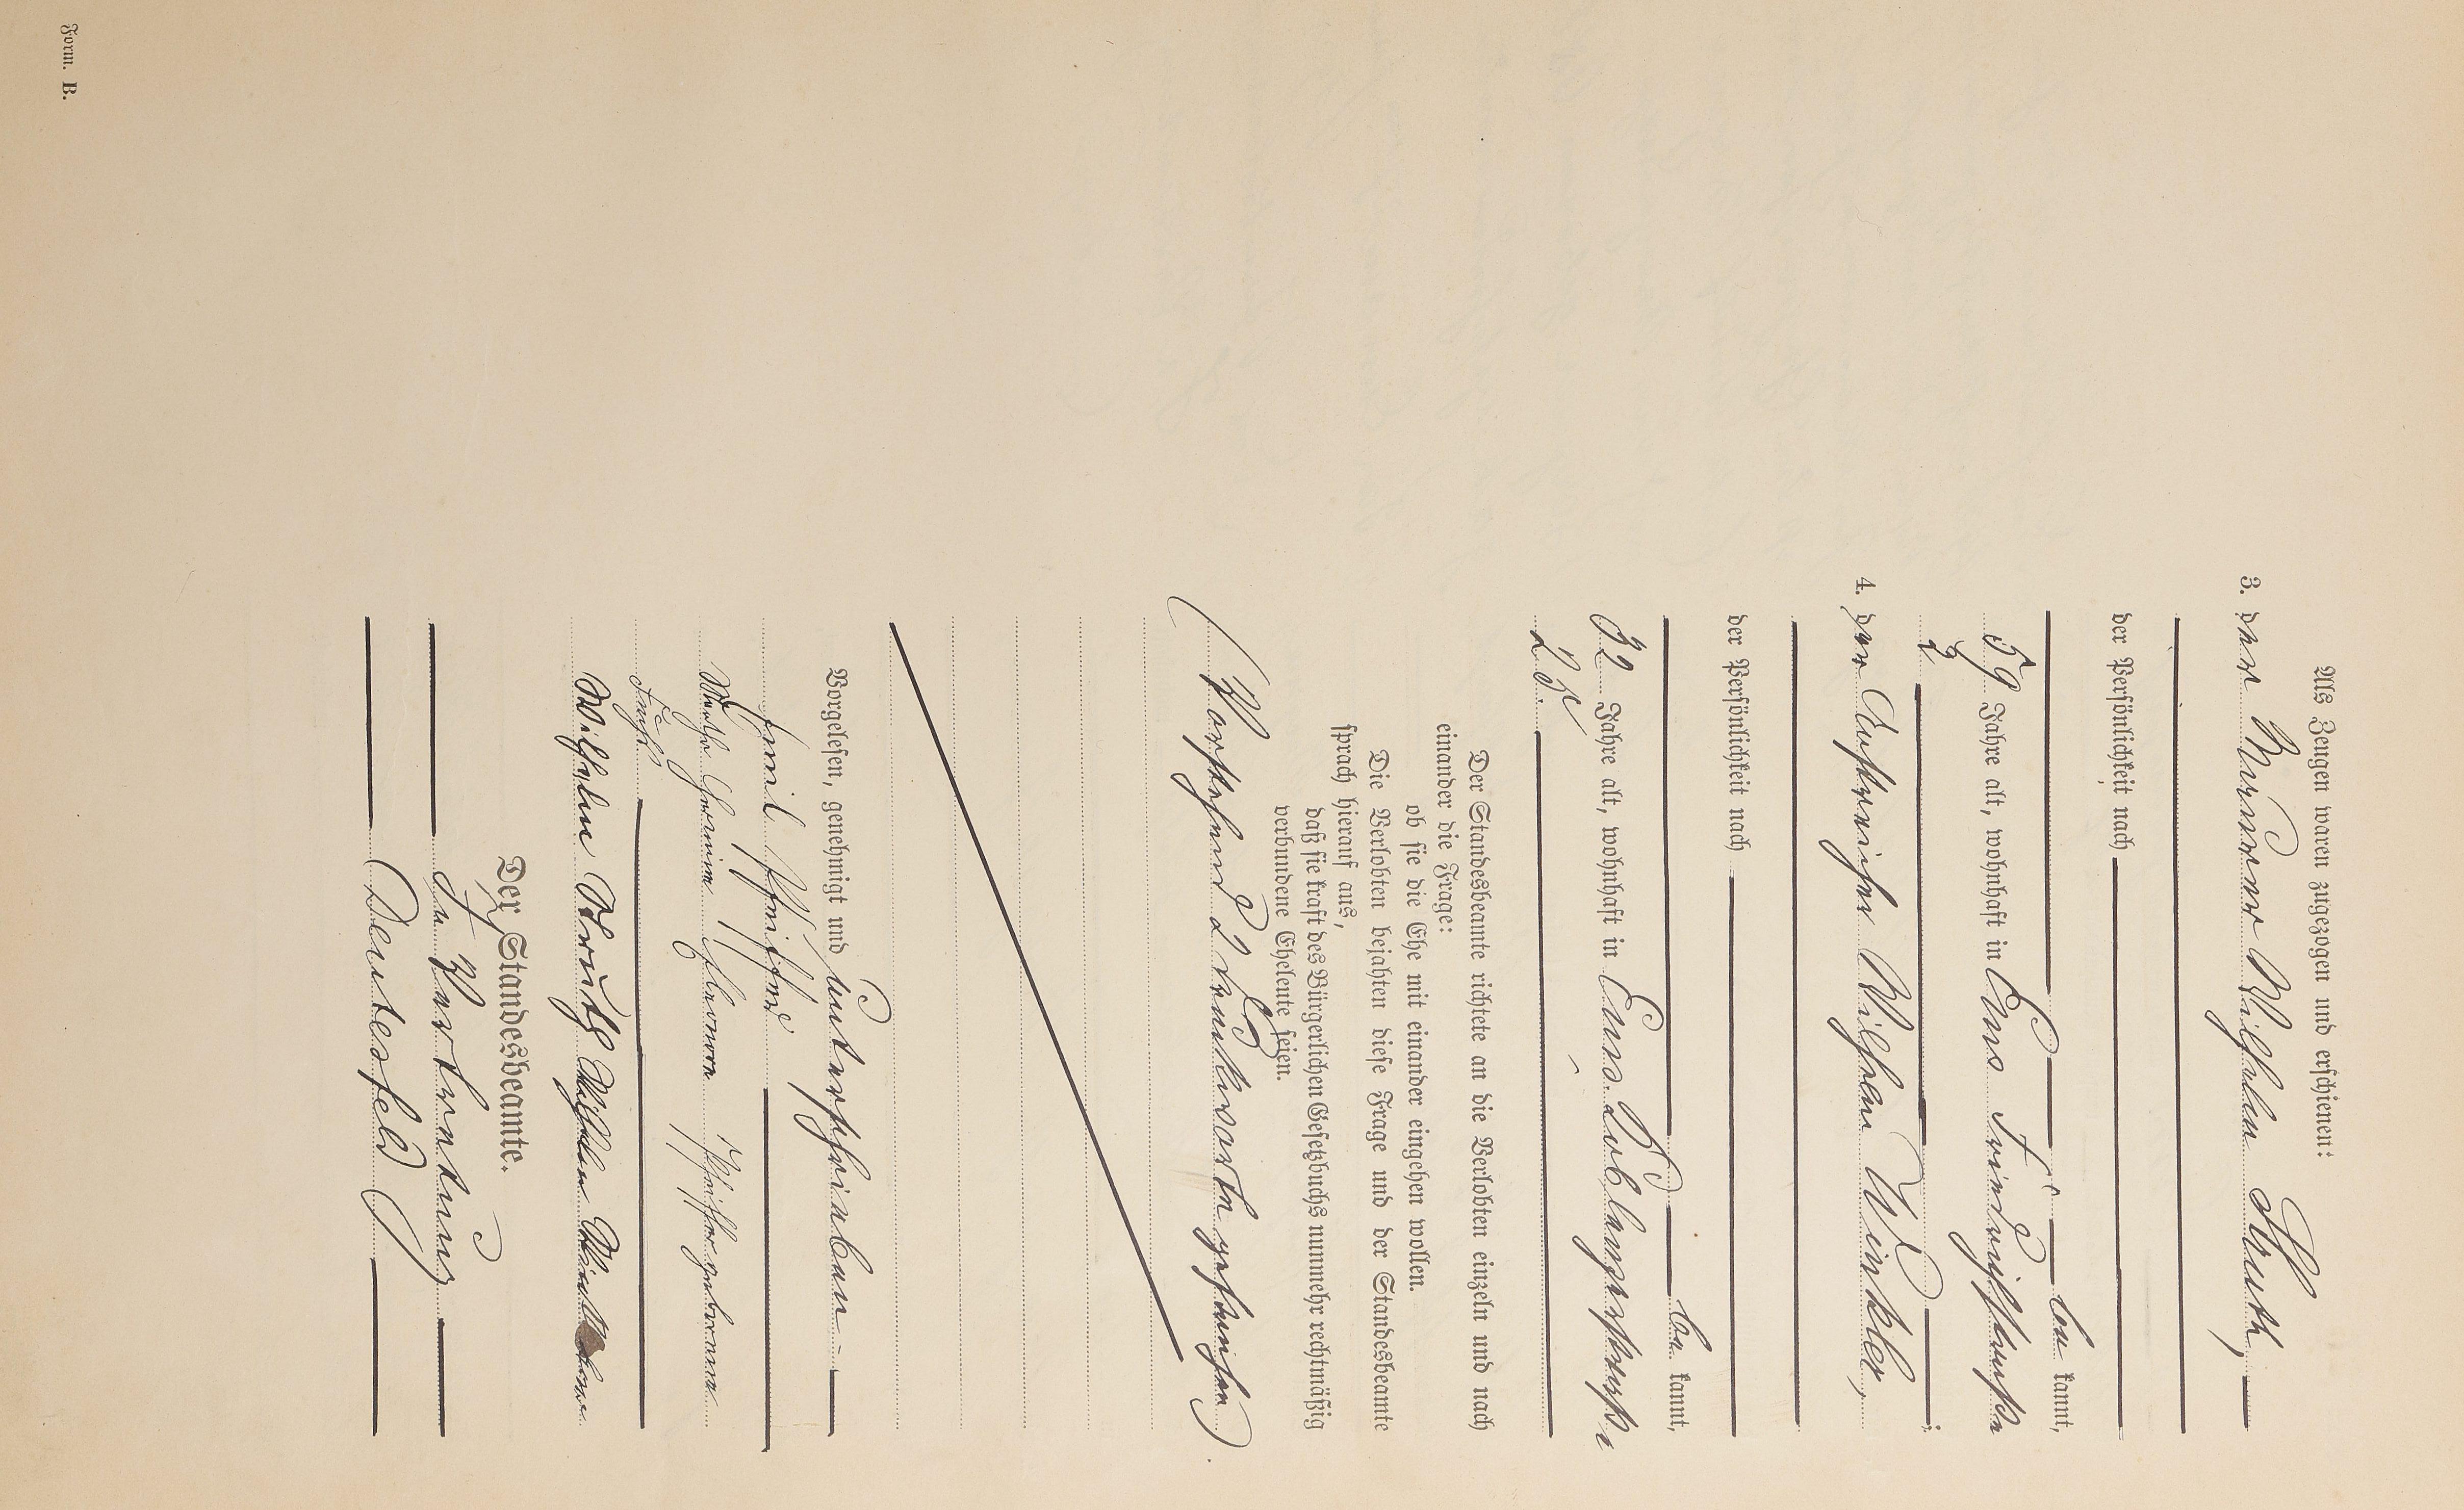 Als Zeugen waren zugezogen und erschienen:
3. der Maurer Wilhelm Stuth,
der Persönlichkeit nach
be kannt,
59 Jahre alt, wohnhaft in Ems, Friedrichstraße
2;
4. der Anstreicher Wilhelm Winkler,
der Persönlichkeit nach
be kannt,
32 Jahre alt, wohnhaft in Ems Coblenzerstraße
28.
Der Standesbeamte richtete an die Verlobten einzeln und nach
einander die Frage:
ob sie die Ehe mit einander eingehen wollen.
Die Verlobten bejahten diese Frage und der Standesbeamte
sprach hierauf aus,
daß sie kraft des Bürgerlichen Gesetzbuchs nunmehr rechtmäßig
verbundene Eheleute seien.
(Vorstehend 2 Druckworte gestrichen).
Vorgelesen, genehmigt und unterschrieben
Emil Pfeiffer
Pfeiffer geborene
Wilhelm Wilhelm
Der Standesbeamte.
In Vertretung
Deutesfeld
Form. B.